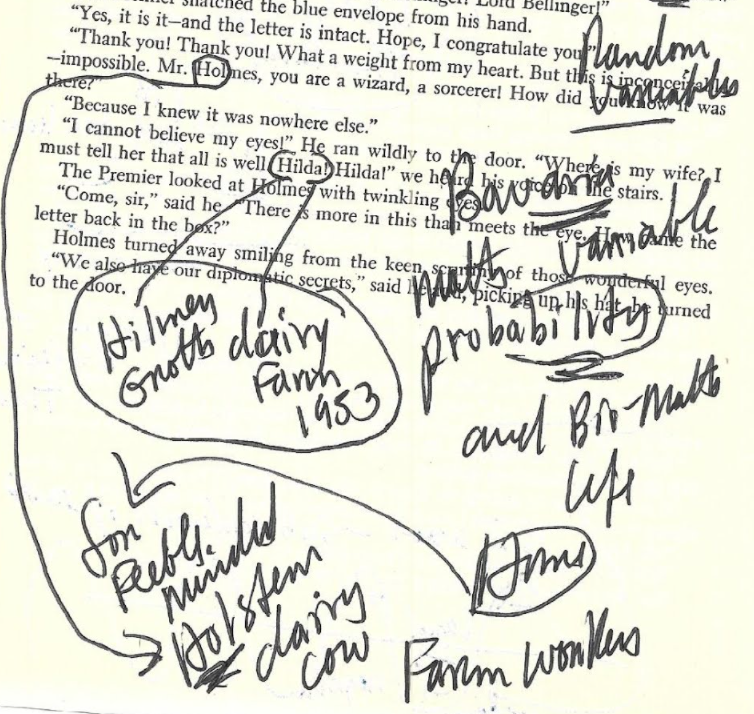 snatched the blue envelope from his hand.
“Yes, it is it—and the letter is intact. Hope, I congratulate you.”
“Thank you! Thank you! What a weight from my heart. But this is inconceivable
—impossible. Mr. Holmes, you are a wizard, a sorcerer! How did you know it was
there?”
“Because I knew it was nowhere else.”
“I cannot believe my eyes!” He ran wildly to the door. “Where is my wife? I
must tell her that all is well. Hilda! Hilda!” we heard his voice on the stairs.
The Premier looked at Holmes with twinkling eyes.
“Come, sir,” said he. “There is more in this than meets the eye. How came the
letter back in the box?”
Holmes turned away smiling from the keen scrutiny of those wonderful eyes.
“We also have our diplomatic secrets,” said he and, picking up his hat, he turned
to the door.
Random
Variables
Bavaria
variable
math
probability
and Bio-Math
life
dairy
Farm
1953
for
Feeble-
minded
Holstein
dairy
cow
Farm Workers